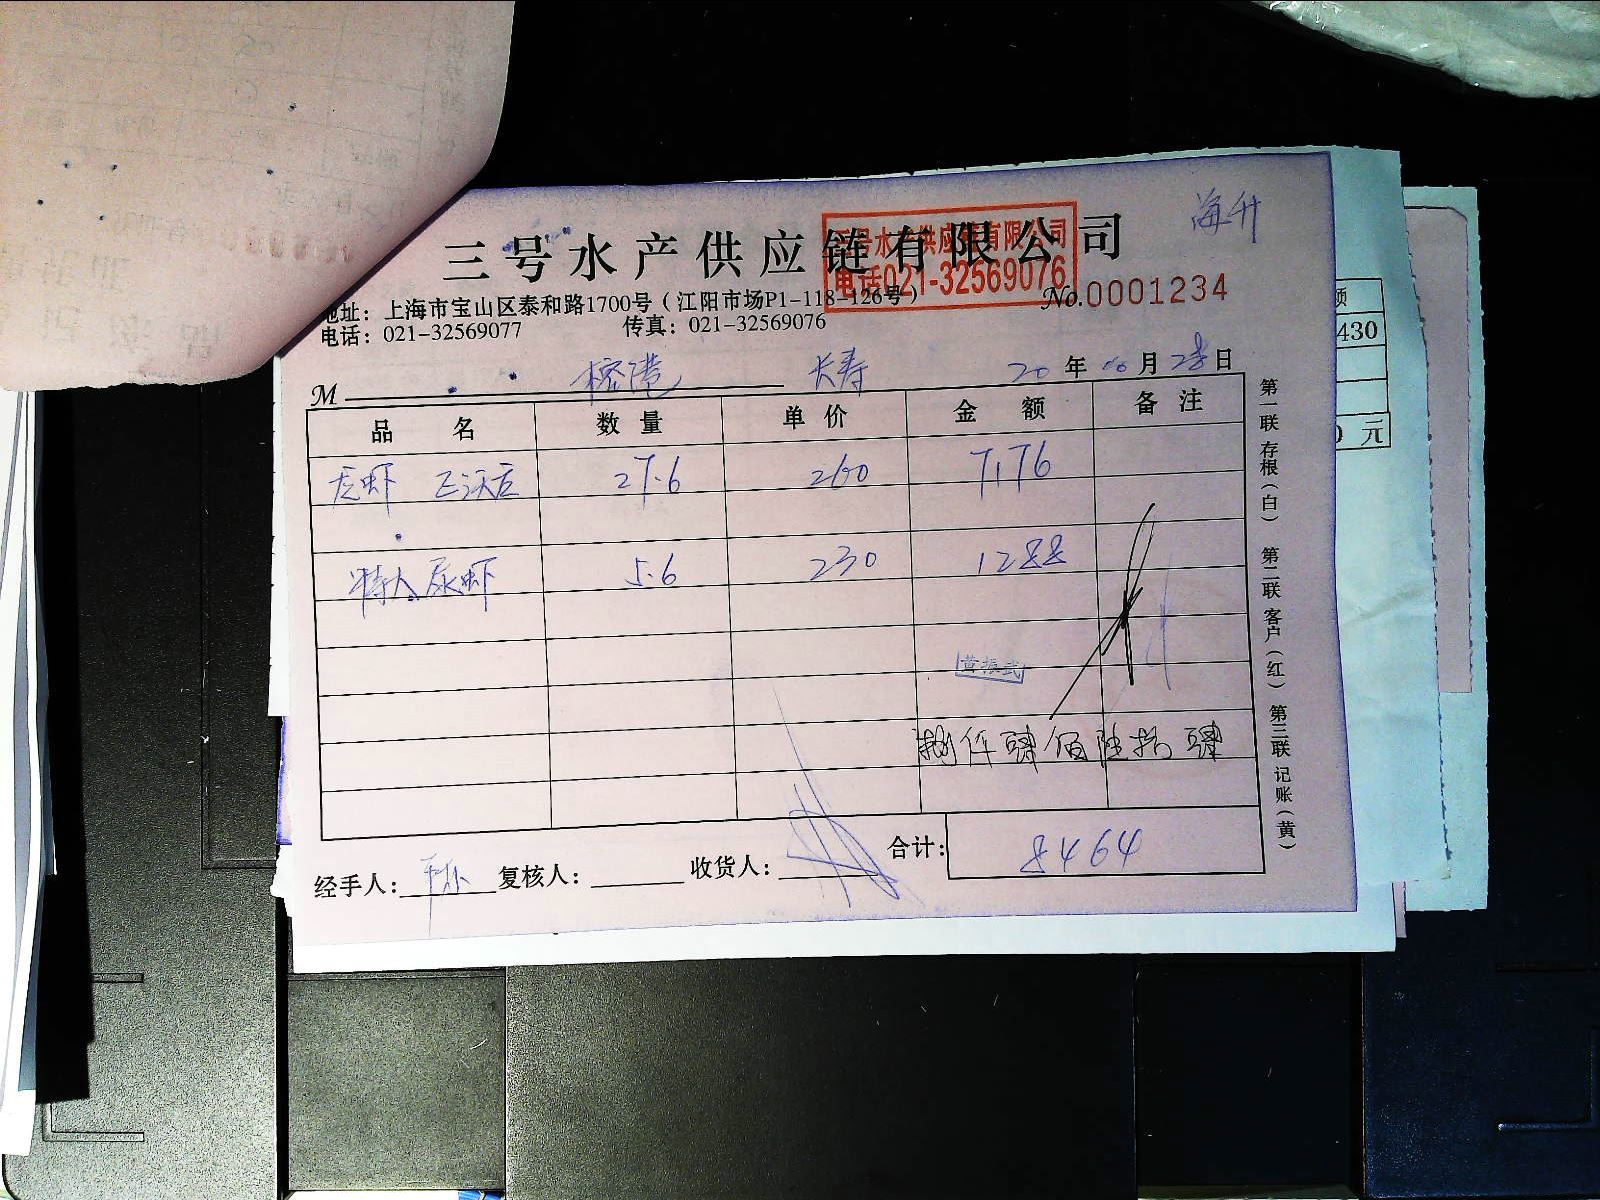 海升
三号水产供应链有限公司
三号水产供应链有限公司
电话021-32569076
地址：上海市宝山区泰和路1700号（江阳市场P1-118-126号）
No.0001234
电话：021-32569077 传真：021-32569076
M 榕港 长寿 20年 06月 28日
品 名 数 量 单 价 金 额 备 注
龙虾 27.6 260 7176
特大尿虾 5.6 230 1288
黄振武
捌仟肆佰陆拾肆
合计： 8464
经手人： 复核人： 收货人：
第一联 存根（白） 第二联 客户（红） 第三联 记账（黄）
额
430
元